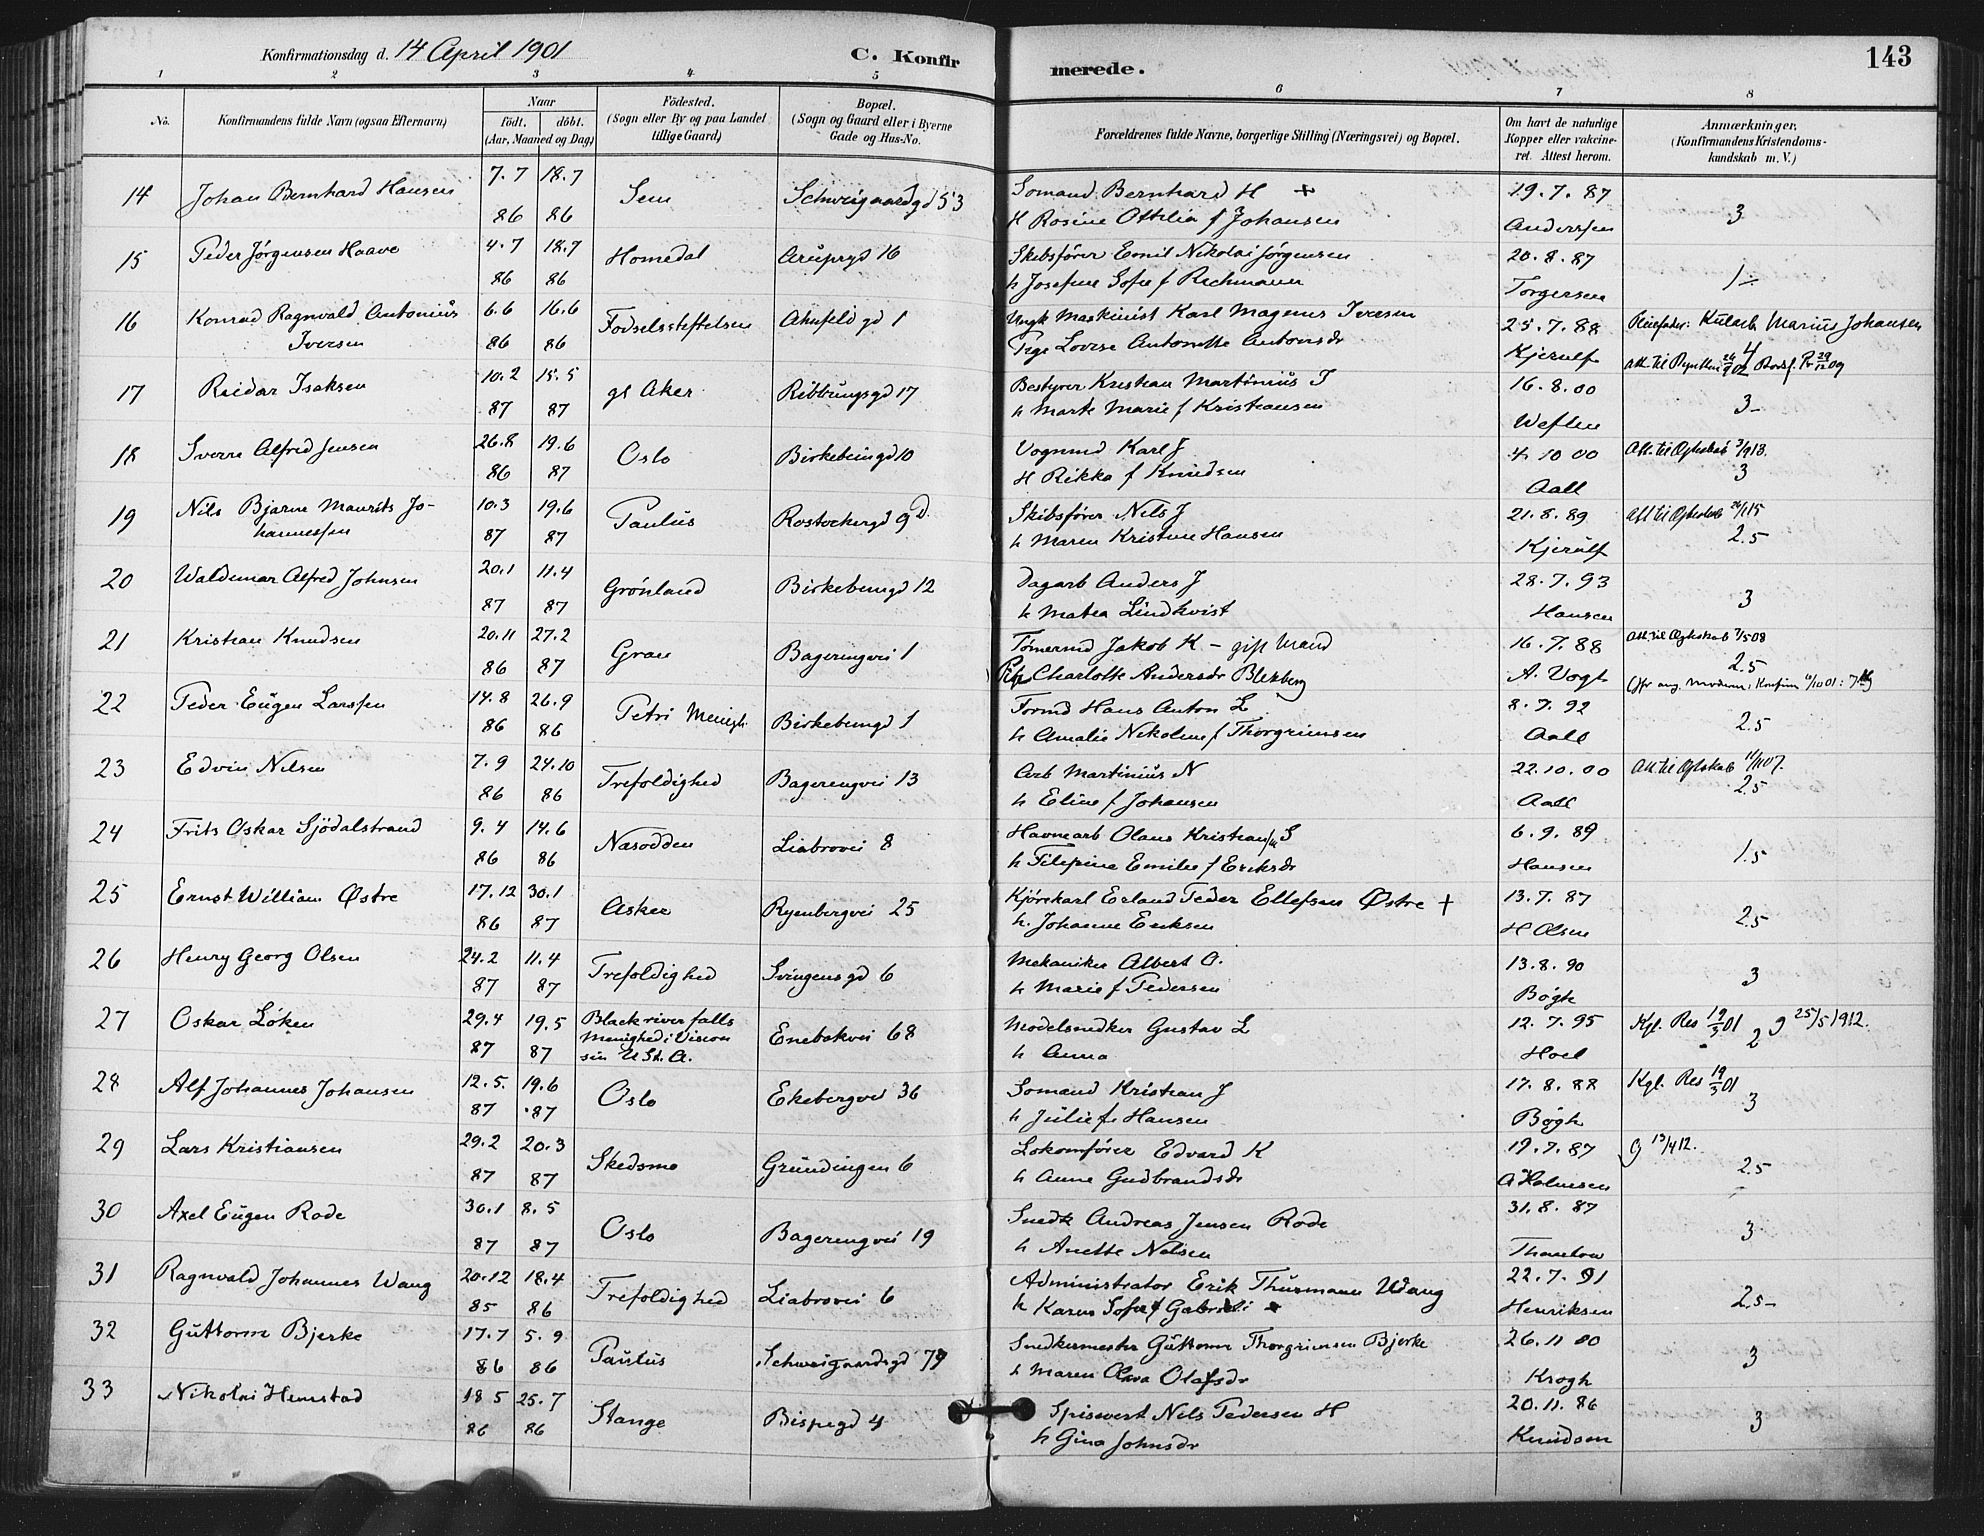 Konfirmationsdag d. 14 April 1901
C. Konfirmerede.
143
1 2 3 4 5 6 7 8
No. Konfirmandens fulde Navn (ogsaa Efternavn) Naar født. døbt. (Aar, Maaned og Dag) Fødested. (Sogn eller By og paa Landet tillige Gaard) Bopæl. (Sogn og Gaard eller i Byerne Gade og Hus-No. Forældrenes fulde Navne, borgerlige Stilling (Næringsvei) og Bopæl. Om havt de naturlige Kopper eller vakcineret. Attest herom. Anmærkninger. (Konfirmandens Kristendomskundskab m. V.)
14 Johan Bernhard Hansen 7.7 18.7 Sem Schweigaardgd 53 Sømand Bernhard H + 19.7.87
86 86 H Rosine Ottilia f Johansen Anderssen 3
15 Peder Jørgensen Haave 4.7 18.7 Homedal Arupsgd 16 Skibsfører Emil Nikolai Jørgensen 20.8.87
86 86 h Josefine Sofie f Richmann Torgersen 1÷
16 Konrad Ragnvald Antonius 6.6 16.6 Fødselsstiftelsen Ahnfeld gd 1 Ungk Maskinist Karl Magnus Iversen 25.7.88 Pleiefader: Kularb Marius Johansen
Iversen 86 86 Pige Lovise Antonette Antonsdr Kjerulf 4
17 Reidar Isaksen 10.2 15.5 gl Aker Ribbungsgd 17 Bestyrer Kristian Martinius I 16.8.00
87 87 h Marte Marie f Kristiansen Weflen 3-
18 Sverre Alfred Jensen 26.8 19.6 Oslo Birkebeingd 10 Vognmd Karl J 4.10 00 Att. til Ægteskab 3/1913.
86 87 H Rikka f Knudsen Aall 3
19 Nils Bjarne Maurits Jo- 10.3 19.6 Paulus Rostockergd 9 D. Skibsfører Nils J 21.8.89 Att til Ægteskab
hannessen 87 87 h Maren Kristine Hansen Kjerulf 2.5
20 Waldemar Alfred Johnsen 20.1 11.4 Grønland Birkebeingd 12 Dagarb Anders J 28.7.93
87 87 h Matea Lindkvist Hansen 3
21 Kristian Knudsen 20.11 27.2 Gran Bagerengvei 1 Tømermd Jakob K - gift Mand 16.7.88 Att. til Ægteskab 7/5 08
86 87 Pige Charlotte Andersdr Blekberg A. Vogt 2.5
22 Peder Eugen Larssen 14.8 26.9 Petri Menigh. Birkebeingd 1 Formd Hans Anton L 8.7.92
86 86 h Amalie Nikoline f Thorgrimsen Aall 2.5
23 Edvin Nilsen 7.9 24.10 Trefoldighed Bagerengvei 13 Arb Martinius N 22.10.00 Att til Ægteskab 11/11 07.
86 86 h Eline f Johansen Aall 2.5
24 Frits Oskar Sjödalstrand 9.4 14.6 Næsodden Liabrovei 8 Havnearb Olaus Kristiansen S 6.9.89
86 86 h Filepine Emilie f Eriksdr Hansen 1.5
25 Ernst William Østre 17.12 30.1 Asker Ryenbergvei 25 Kjørekarl Erland Peder Ellefsen Østre + 13.7.87
86 87 h. Johanne Eriksen H Olsen 2.5
26 Henry Georg Olsen 24.2 11.4 Trefoldighed Svingensgd 6 Mekaniker Albert O. 13.8.90
87 87 h Marie f Pedersen Bøgh 3
27 Oskar Løken 29.4 19.5 Black river falls Enebakvei 68 Modelsnedker Gustav L 12.7.95 Kgl. Res 19/3 01
87 87 Menighed i Viscon- h Anna Hoel 2 g 25/5 1912.
sin U. St. A.
28 Alf Johannes Johansen 12.5. 19.6 Oslo Ekebergvei 36 Sømand Kristian J 17.8.88 Kgl. Res 19/3 01
87 87 h Julie f. Hansen Bøgh 3
29 Lars Kristiansen 29.2 20.3 Skedsmo Grundingen 6 Lokomfører Edvard K 19.7.87 g 13/4 12.
87 87 h Anne Gudbrandsdr A Holmsen 2.5
30 Axel Eugen Rode 30.1 8.5 Oslo Bagerengvei 19 Snedk Andreas Jensen Rode 31.8.87
87 87 h Anette Nilsen Thaulow 3
31 Ragnvald Johannes Wang 20.12 18.4 Trefoldighed Liabrovei 6 Administrator Erik Thurmann Wang 22.7.91
85 86 h Karen Sofie f Gabrieli Henriksen 2.5-
32 Guttorm Bjerke 17.7 5.9 Paulus Schweigaardsgd 79 Snedkermester Guttorm Thorgrimsen Bjerke 26.11 00
86 86 h Maren Olava Olafsdr Krogh 3
33 Nikolai Hemstad 18 5 25.7 Stange Bispegd 4 Spisevert Nils Pedersen H 20.11.86
86 86 h Gina Johnsdr Knudsen 3